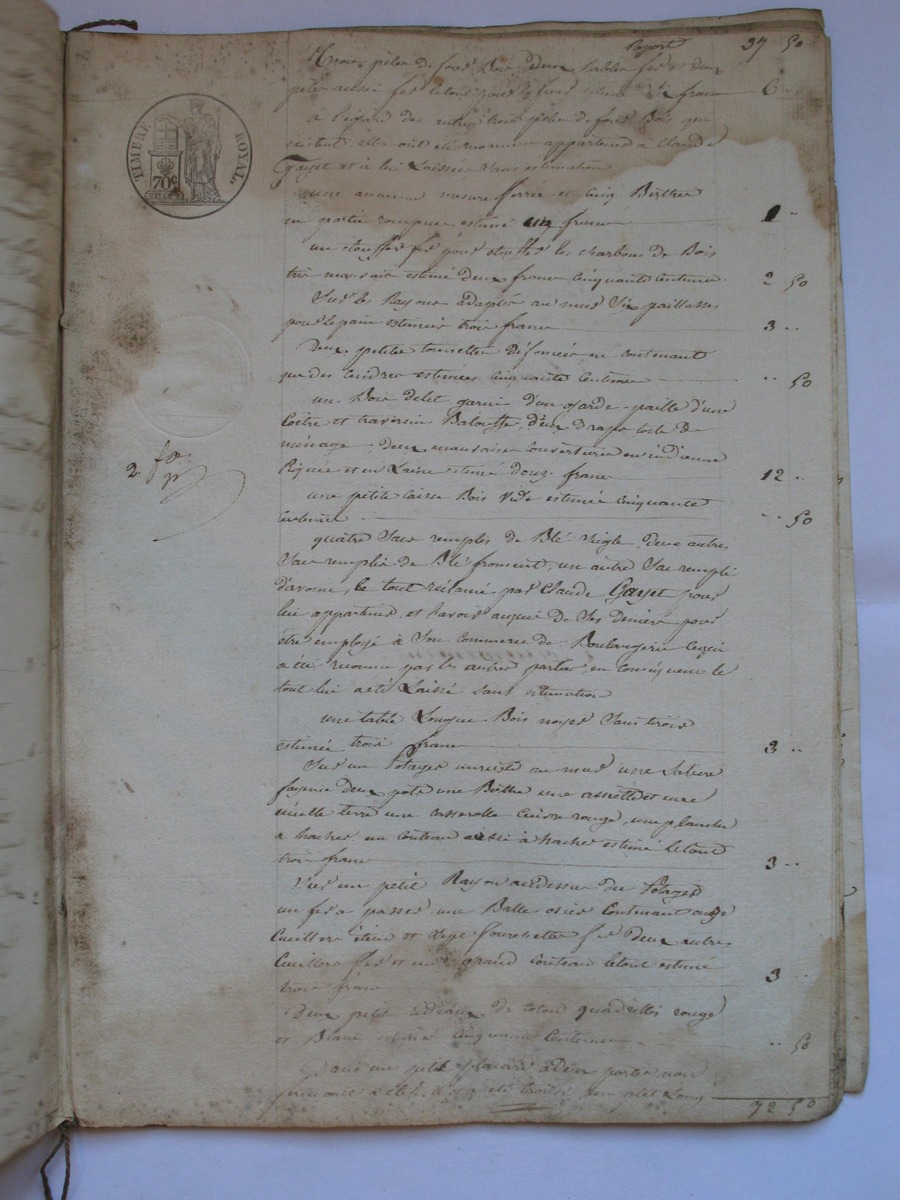 Report 37 50
Trois pelles de four Bois, deux rables fer & deux
pelles aussi fer le tout pour le four estimé six francs 6 ..
a l'égard des autres trois pelles de four Bois qui
existent elles ont été reconnues appartenir a Claude
Gayet et à lui Laissées sans estimation
TIMBRE ROYAL
70c
une mesure ferrée et cinq Berthes
en partie rompues estimé un franc 1 ..
un étouffoir fer pour étouffer les charbons de Bois
très mauvais estimé deux francs cinquante centimes 2 50
Sur les Rayons adaptés au mur six paillasses
pour le pain estimées trois francs 3 ..
Deux petites défoncées ne contenant
que des cendres estimées cinquante centimes .. 50
un Bois delit garni d'un garde-paille d'une
Coëtre et traversin Balouffe, deux draps toile de
ménage, deux mauvaises couvertures indienne
Piquée et en Laine estimé douze francs 12 ..
2e
une petite caisse Bois vide estimée cinquante
centimes .. 50
quatre sacs remplis de Blé seigle, deux autres
sacs remplis de Blé froment, un autre sac rempli
d'avoine, le tout réclamé par Claude Gayet pour
lui appartenir et l'avoir acquis de ses deniers pour
être employé à son commerce de Boulangerie ce qui
a été reconnu par les autres parties, en conséquence le
tout lui a été Laissé sans estimation
une table Longue Bois noyer sans tiroir
estimée trois francs 3 ..
Sur un Potager au mur une
fayence deux pots une Berthe une assiette et une
terre une casserolle cuivre rouge, une planche
a hacher un couteau aussi à hacher estimé le tout
trois francs 3 ..
Sur un petit Rayon au dessus du Potager
un fer a passer une Balle osier contenant onze
Cueillers étain et sept fourchettes fer deux autres
Cueillers fer et un grand couteau le tout estimé
trois francs 3 ..
Deux petits rideaux de coton quadrillés rouge
et Blanc estimés cinquante Centimes .. 50
Dans un petit placard a deux portes non
fermant à clef, il a été trouvé
72 50